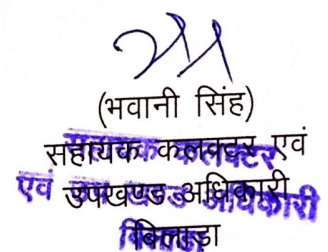 (भवानी सिंह)
सहायक कलक्टर एवं
उपखण्ड अधिकारी
बिलाड़ा